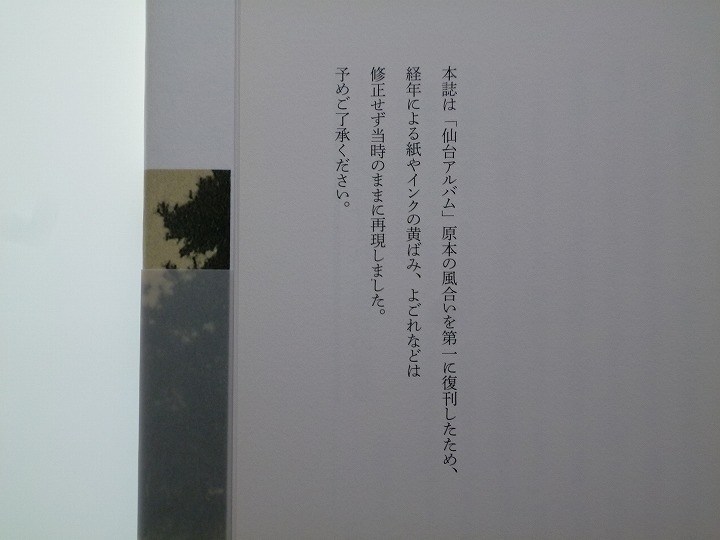 本誌は「仙台アルバム」原本の風合いを第一に復刊したため、
経年による紙やインクの黄ばみ、よごれなどは
修正せず当時のままに再現しました。
予めご了承ください。